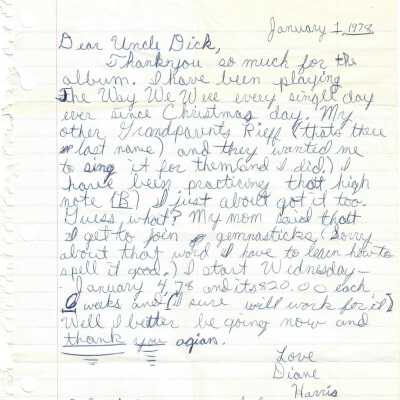 January 1, 1978
Dear Uncle Dick,
Thankyou so much for the
album. I have been playing
The Way We Wee every single day
ever since Christmas day. My
other Grandparents Rieff (thats there
last name) and they wanted me
to sing it for them (and I did.) I
have been practicing that high
note (B.) I just about got it too.
Guess what? My mom said that
I get to join gemnasticks. (Sorry
about that word I have to learn how to
spell it good.) I start Wednesday -
January 4, 78 and its $20.00 each
6 weeks and (I sure will work for it.)
Well I better be going now and
thank you agian.
Love
Diane
Harris